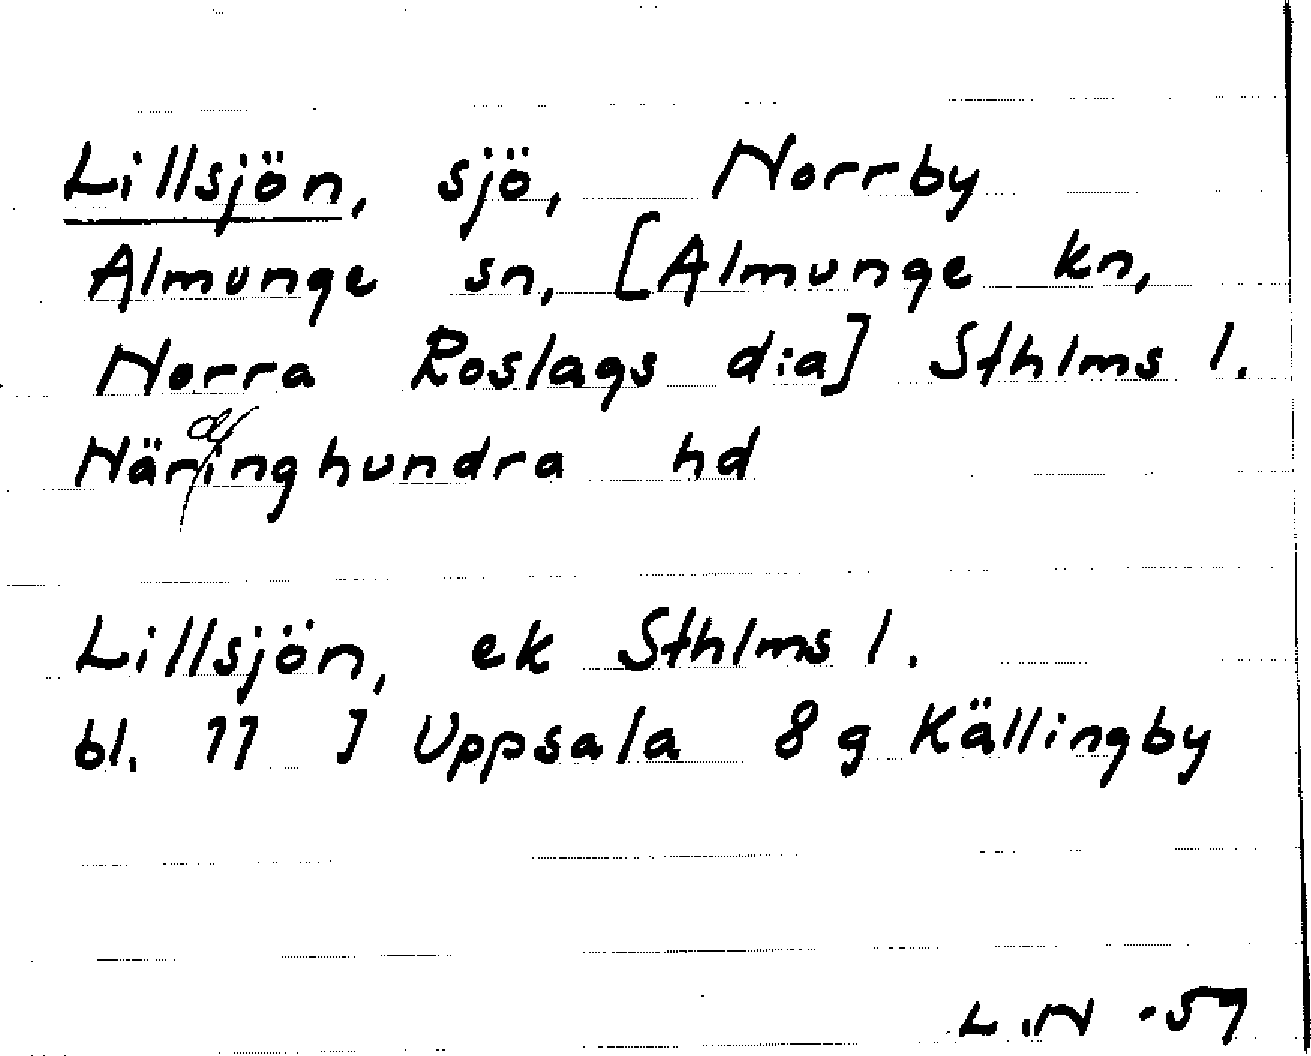 Lillsjön, sjö, Norrby
Almunge sn, [Almunge kn,
Norra Roslags dia] Sthlms l.
Närdinghundra hd
Lillsjön, ek Sthlms l.
bl. 11 J Uppsala 8 g Källingby
L.N -59